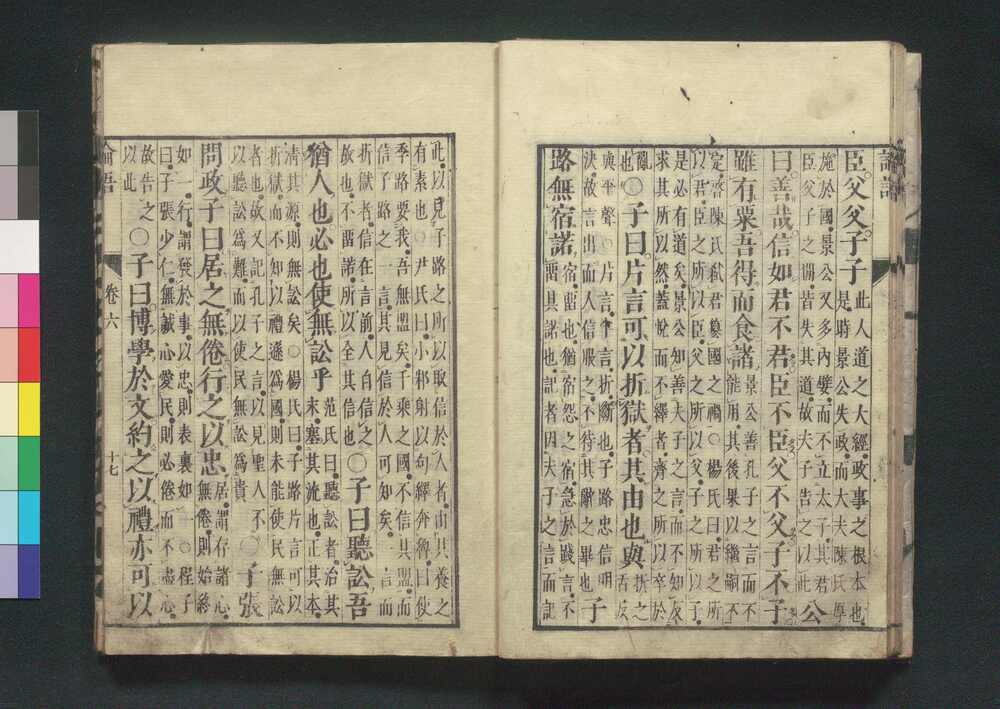 論語
臣父父子子
此人道之大經政事之根本也
是時景公失政而大夫陳氏厚
施於國景公又多內嬖而不立太子其君
臣父子之間皆失其道故夫子告之以此
公
曰善哉信如君不君臣不臣父不父子不子
雖有粟吾得而食諸
景公善孔子之言而不
能用其後果以繼嗣不
定啓陳氏弑君簒國之禍○楊氏曰君之所
以君臣之所以臣父之所以父子之所以子
是必有道矣景公知善夫子之言而不知反
求其所以然蓋悅而不繹者齊之所以卒於
亂
也
○子曰片言可以折獄者其由也與
折之
舌反
與平聲○片言半言折斷也子路忠信明
決故言出而人信服之不待其辭之畢也
子
路無宿諾
宿留也猶宿怨之宿急於踐言不
留其諾也記者因夫子之言而記
此以見子路之所以取信於人者由其養之
有素也○尹氏曰小邾射以句繹奔魯曰使
季路要我吾無盟矣千乘之國不信其盟而
信子路之一言其見信於人可知矣一言而
折獄者信在言前人自信之
故也不留諾所以全其信也
○子曰聽訟吾
猶人也必也使無訟乎
范氏曰聽訟者治其
末塞其流也正其本
清其源則無訟矣○楊氏曰子路片言可以
折獄而不知以禮遜爲國則未能使民無訟
者也故又記孔子之言以見聖人不
以聽訟爲難而以使民無訟爲貴
○子張
問政子曰居之無倦行之以忠
居謂存諸心
無倦則始終
如一行謂發於事以忠則表裏如一○程子
曰子張少仁無誠心愛民則必倦而不盡心
故告之
以此
○子曰博學於文約之以禮亦可以
論語
卷六
十七